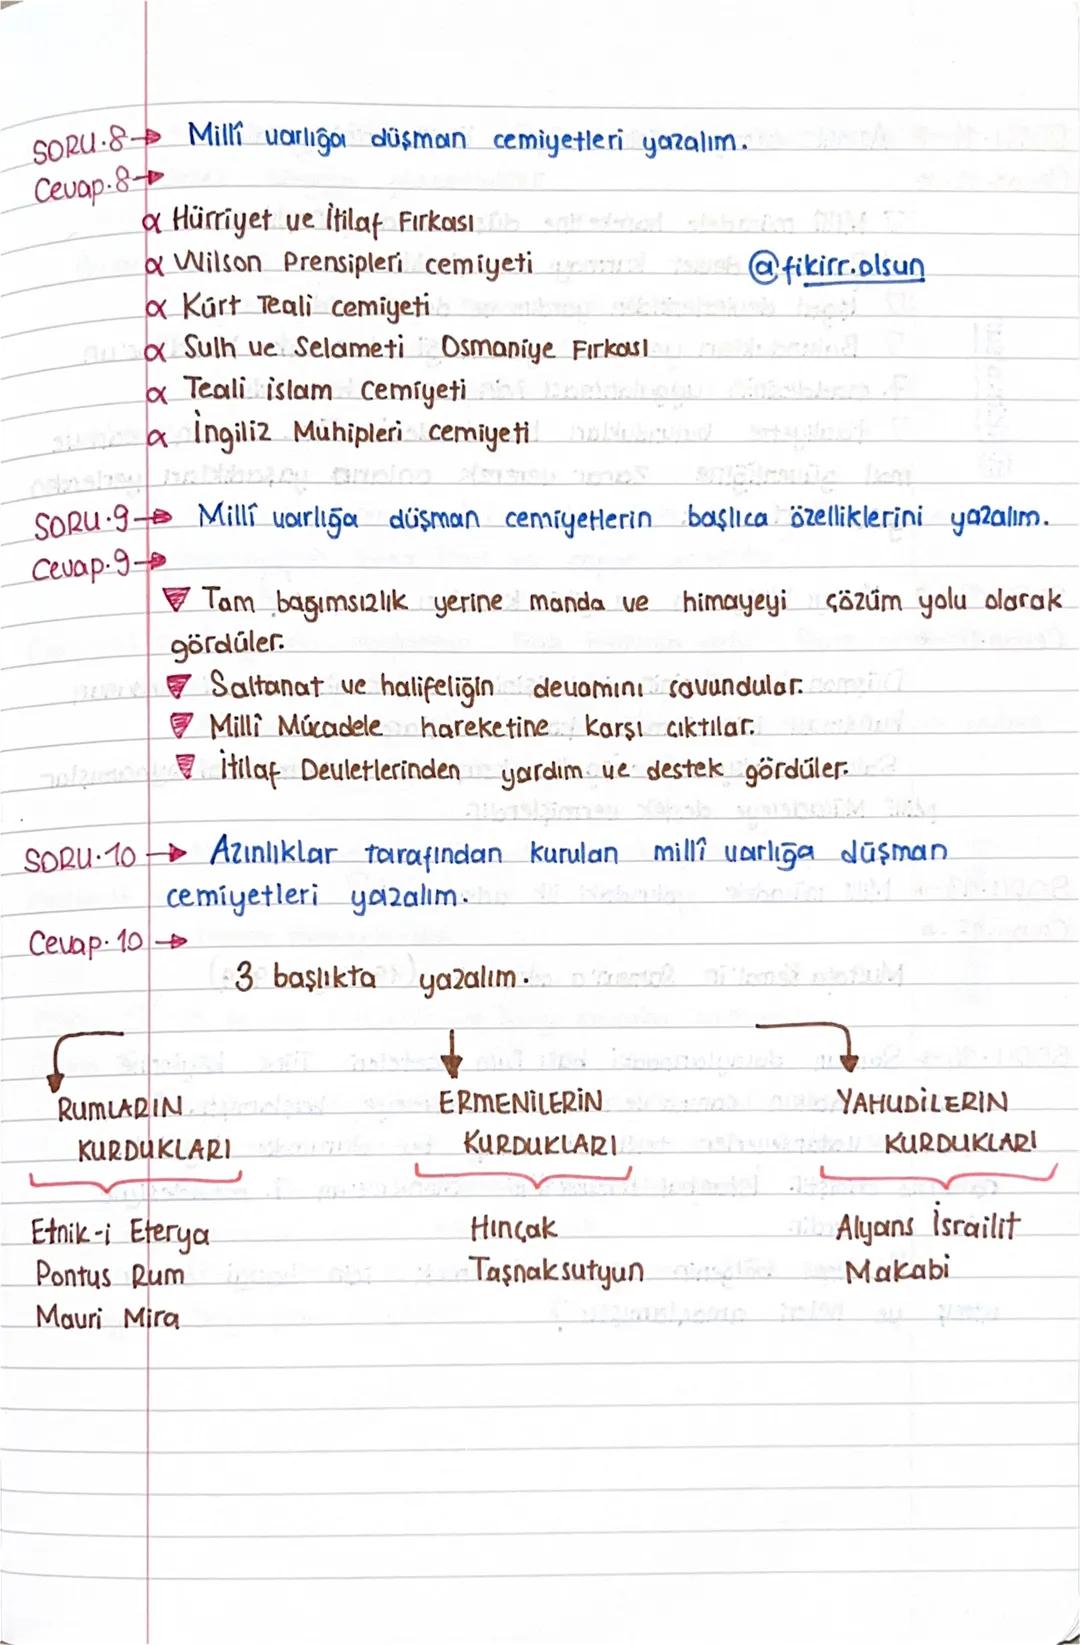 SORU.8→ Millî varlığa düşman cemiyetleri yazalım.
Cevap.8→
α Hürriyet ve İtilaf Fırkası
α Wilson Prensipleri cemiyeti
@fikirr.olsun
α Kürt Teali cemiyeti
α Sulh ve Selameti Osmaniye Fırkası
α Teali islam Cemiyeti
α İngiliz Muhipleri cemiyeti
SORU.9→ Millî varlığa düşman cemiyetlerin başlıca özelliklerini yazalım.
Cevap.9→
▼ Tam bağımsızlık yerine manda ve himayeyi çözüm yolu olarak
gördüler.
▼ Saltanat ve halifeliğin devamını savundular.
▼ Millî Mücadele hareketine karşı çıktılar.
▼ İtilaf Devletlerinden yardım ve destek gördüler.
SORU.10→ Azınlıklar tarafından kurulan millî varlığa düşman
cemiyetleri yazalım.
Cevap.10→
3 başlıkta yazalım.
RUMLARIN
KURDUKLARI
Etnik-i Eterya
Pontus Rum
Mavri Mira
ERMENİLERİN
KURDUKLARI
Hınçak
Taşnaksutyun
YAHUDİLERİN
KURDUKLARI
Alyans İsrailit
Makabi